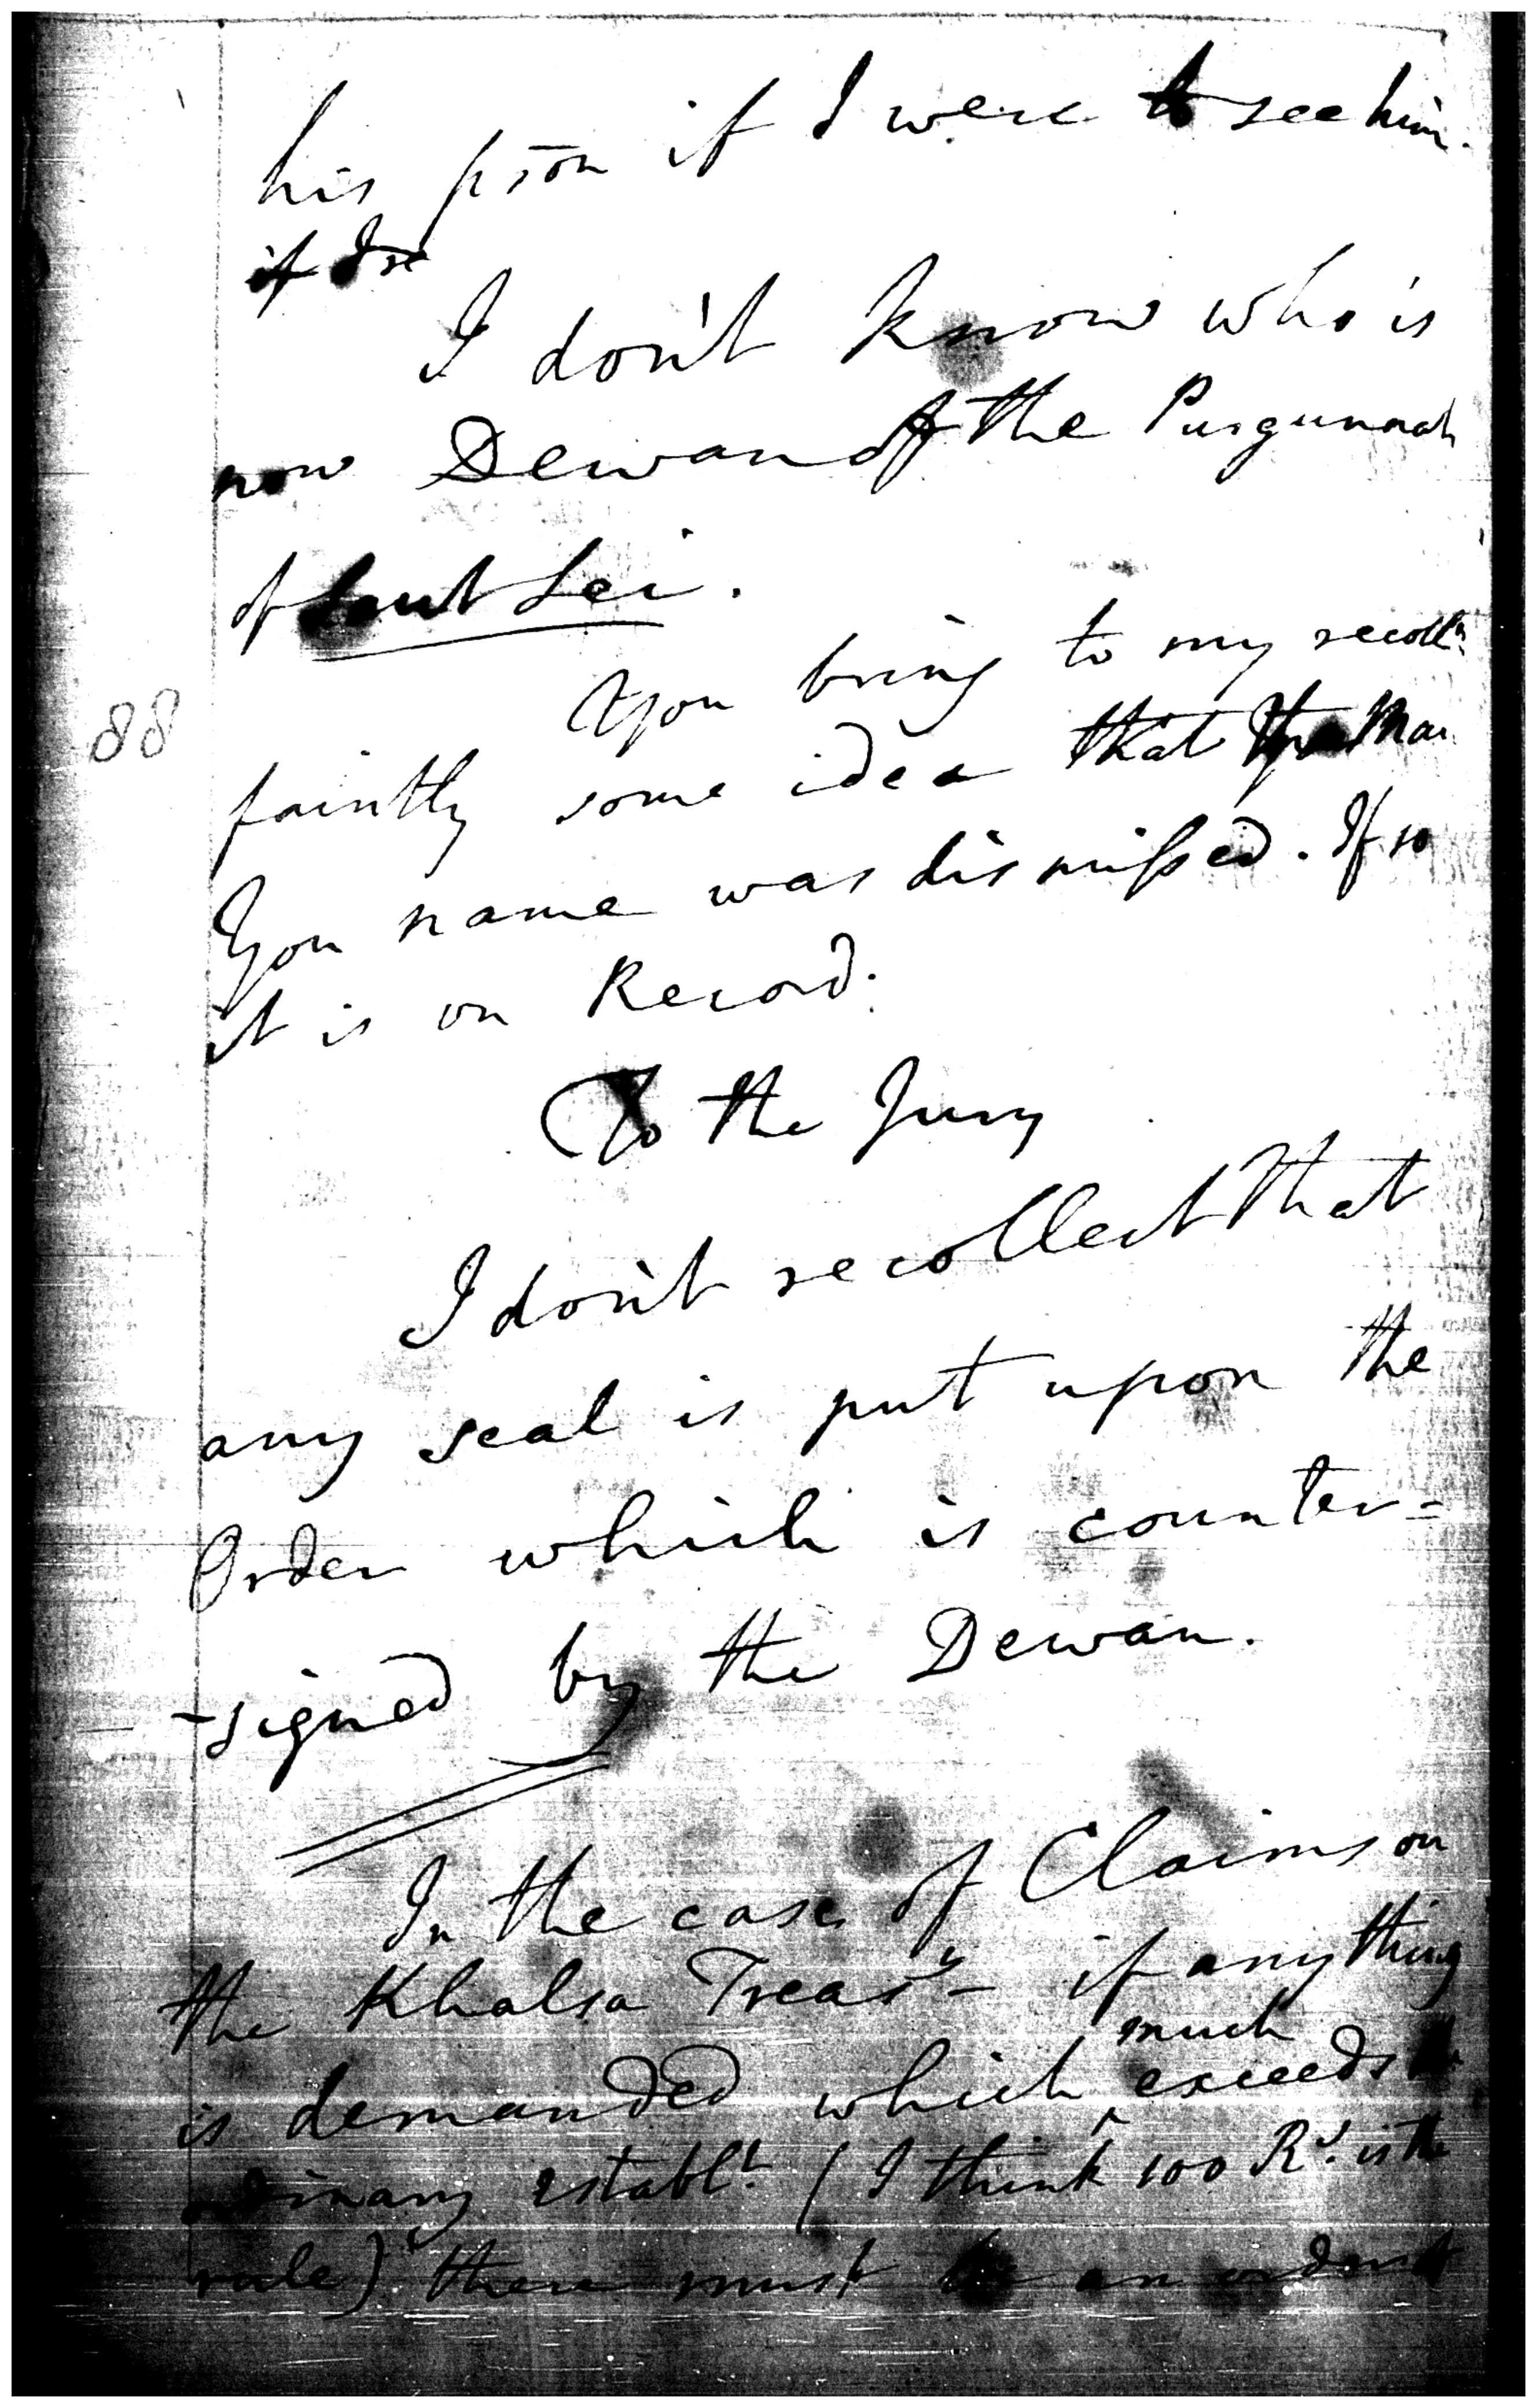 his p̄son if I were to see him.
if I se
I don't know who is
now Dewan of the Purgunnah
of
You bring to my recoll.n
faintly some idea that the Man
You name was dismissed. If so
it is on Record.
88
To the Jury
I don't recollect that
any seal is put upon the
Order which is counter=
-signed by the Dewan.
In the case of Claims on
the Khalsa Treasy if any thing
is demanded which much exceeds the
ordinary establt. (I think 100 Rs. is the
rule) there must be an order